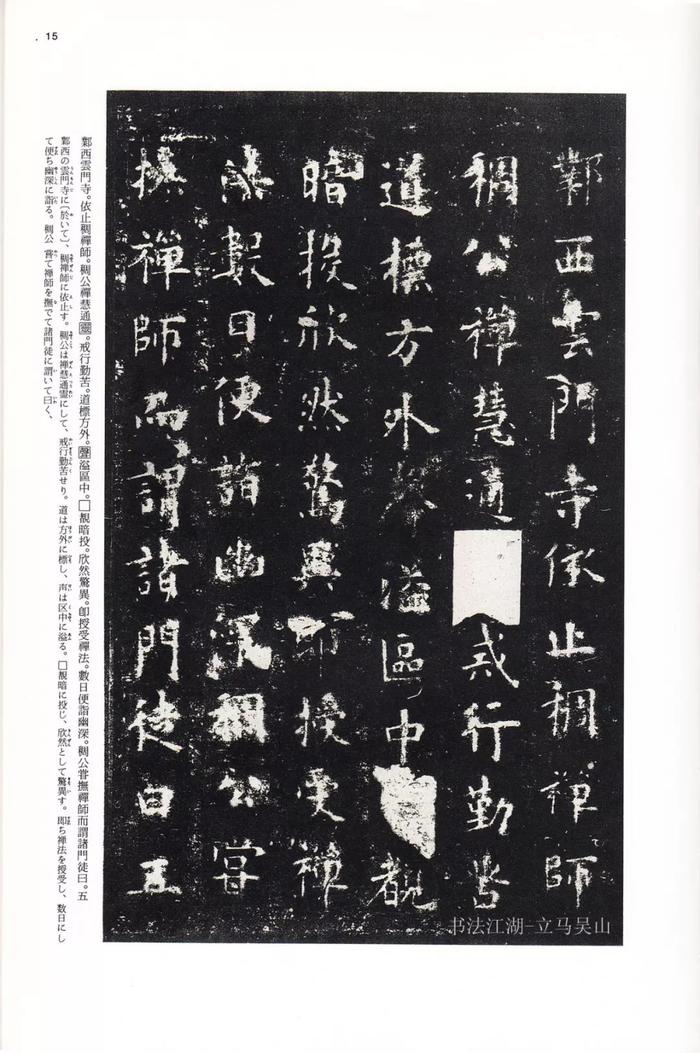 15
鄴西雲門寺依止稠禪師
稠公禪慧通戒行勤苦
道標方外聲溢區中觀
暗投欣然驚異即授受禪
法數日便詣幽深稠公嘗
撫禪師而謂諸門徒曰五
书法江湖-立马吴山
鄴西雲門寺。依止稠禪師。稠公禪慧通靈。戒行勤苦。道標方外。聲溢區中。□覩暗投。欣然驚異。卽授受禪法。數日便詣幽深。稠公甞撫禪師而謂諸門徒曰。五
鄴西の雲門寺に(於いて)、稠禅師に依止す。稠公は禅慧通霊にして、戒行勤苦せり。道は方外に標し、声は区中に溢る。□覩暗に投じ、欣然として驚異す。即ち禅法を授受し、数日にし
て便ち幽深に詣る。稠公 嘗て禅師を撫でて諸門徒に謂いて曰く、